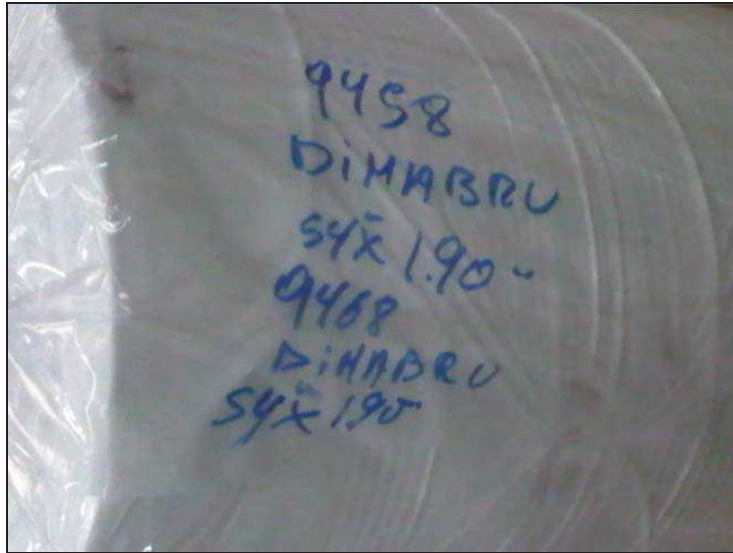 9458
DiMABRU
54x 1.90
9468
DiMABRU
54x 1.90